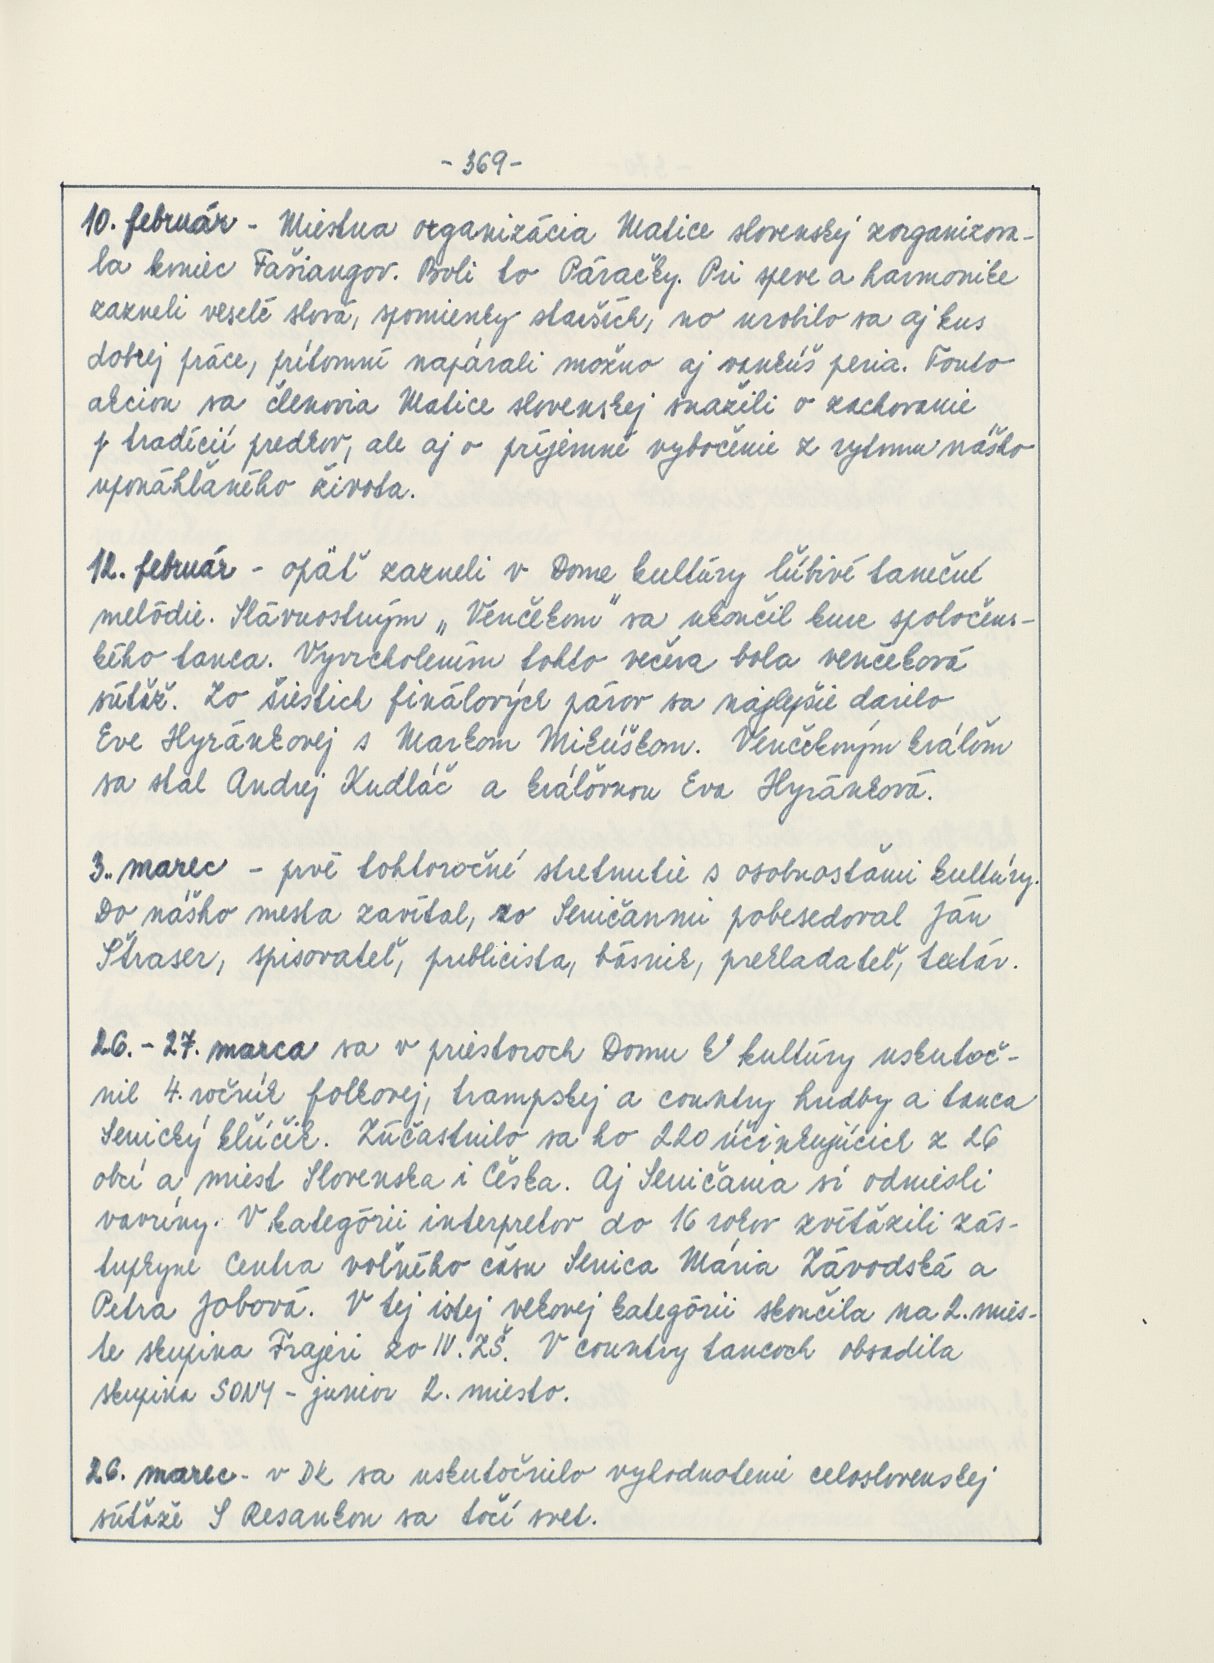 - 369 -
10. február - Miestna organizácia Matice slovenskej zorganizova-
la koniec Fašiangov. Boli to Páračky. Pri speve a harmonike
zazneli veselé slová, spomienky starších, no urobilo sa aj kus
dobrej práce, prítomní napárali možno aj vankúš peria. Touto
akciou sa členovia Matice slovenskej snažili o zachovanie
tradícií predkov, ale aj o príjemné vybočenie z rytmu nášho
uponáhľaného života.
12. február - opäť zazneli v Dome kultúry ľúbivé tanečné
melódie. Slávnostným „Venčekom" sa ukončil kurz spoločens-
kého tanca. Vyvrcholením tohto večera bola venčeková
súťaž. Zo šiestich finálových párov sa najlepšie darilo
Eve Hyránkovej s Markom Mikúškom. Venčekovým kráľom
sa stal Andrej Kudláč a kráľovnou Eva Hyránková.
3. marec - prvé tohtoročné stretnutie s osobnosťami kultúry.
Do nášho mesta zavítal, so Seničanmi pobesedoval Ján
Štraser, spisovateľ, publicista, básnik, prekladateľ, textár.
26. - 27. marca sa v priestoroch Domu kultúry uskutoč-
nil 4. ročník folkovej, trampskej a country hudby a tanca
Senický kľúčik. Zúčastnilo sa ho 220 účinkujúcich z 26
obcí a miest Slovenska i Česka. Aj Seničania si odniesli
vavríny. V kategórii interpretov do 16 rokov zvíťazili zás-
tupkyne Centra voľného času Senica Mária Závodská a
Petra Jobová. V tej istej vekovej kategórii skončila na 2. mies-
te skupina Frajeri zo IV. ZŠ. V country tancoch obsadila
skupina SONY - junior 2. miesto.
26. marec - v DK sa uskutočnilo vyhodnotenie celoslovenskej
súťaže S Rosankou sa točí svet.